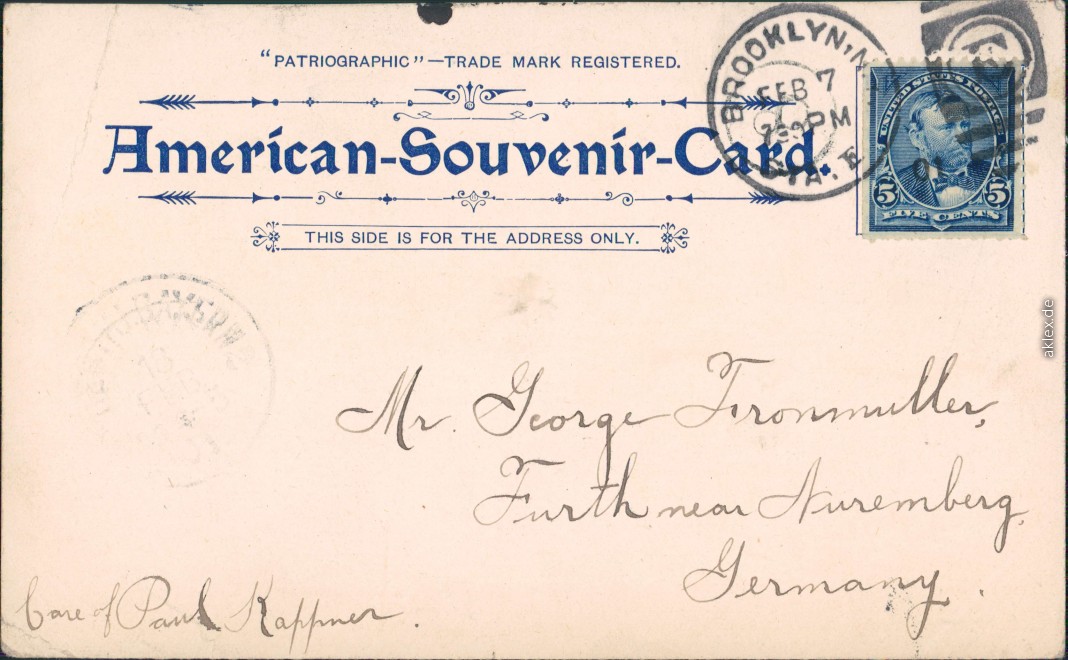 "PATRIOGRAPHIC"—TRADE MARK REGISTERED.
American-Souvenir-Card.
THIS SIDE IS FOR THE ADDRESS ONLY.
BROOKLYN, N.Y.
FEB 7
PM
STA.
UNITED STATES POSTAGE
5 5
FIVE CENTS
Mr. George Fronmuller,
Furth near Nuremberg,
Germany.
Care of Paul Kappner.
aklex.de